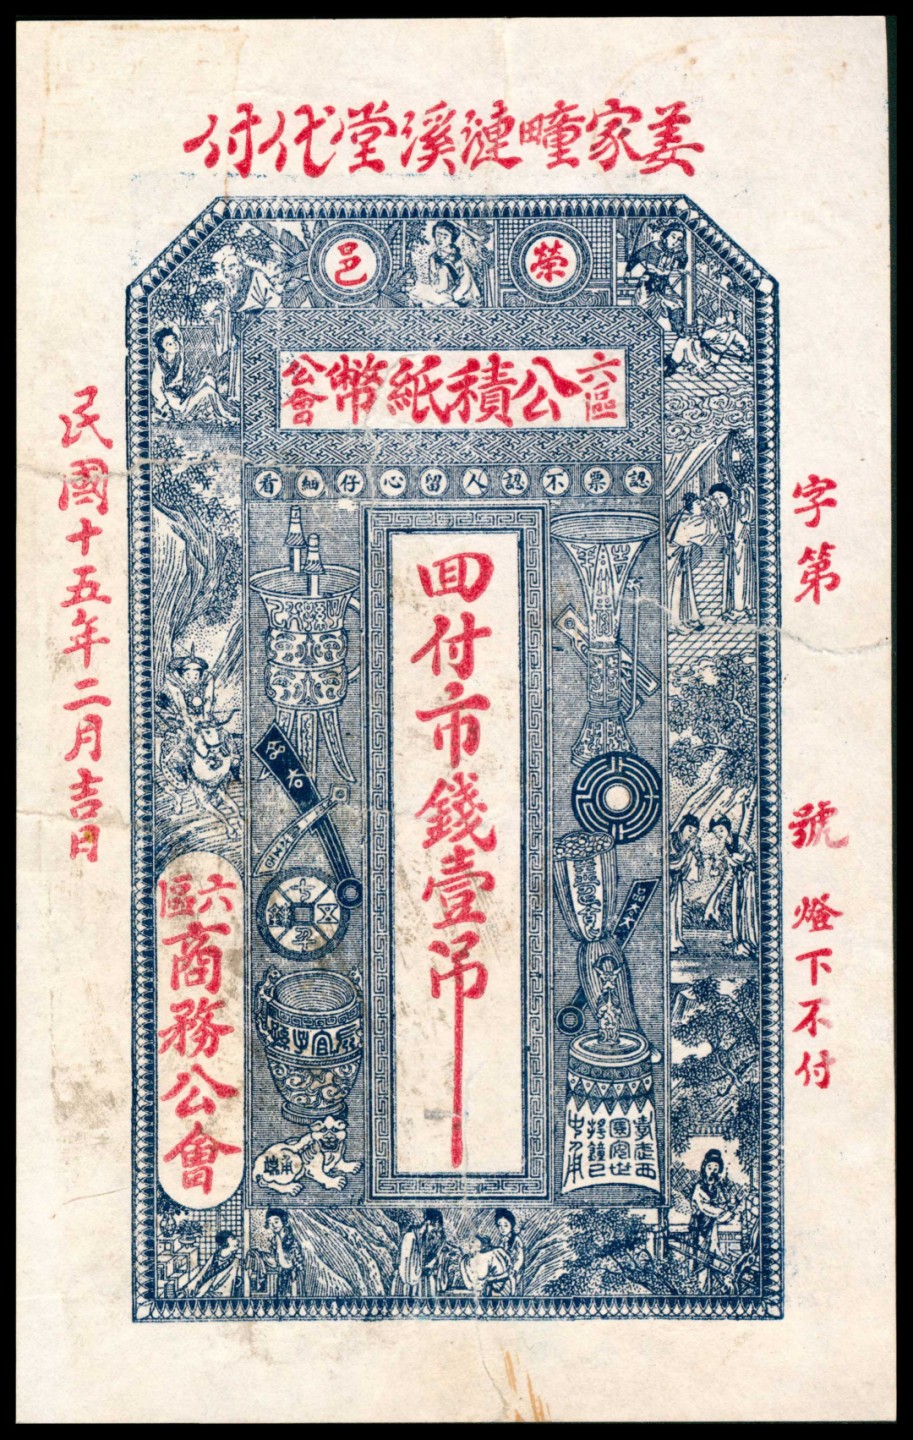 姜家疃漣溪堂代付
榮邑
六區公積紙幣公會
認票不認人留心仔細看
回付市錢壹吊
字第
號
燈下不付
民國十五年二月吉日
六區商務公會